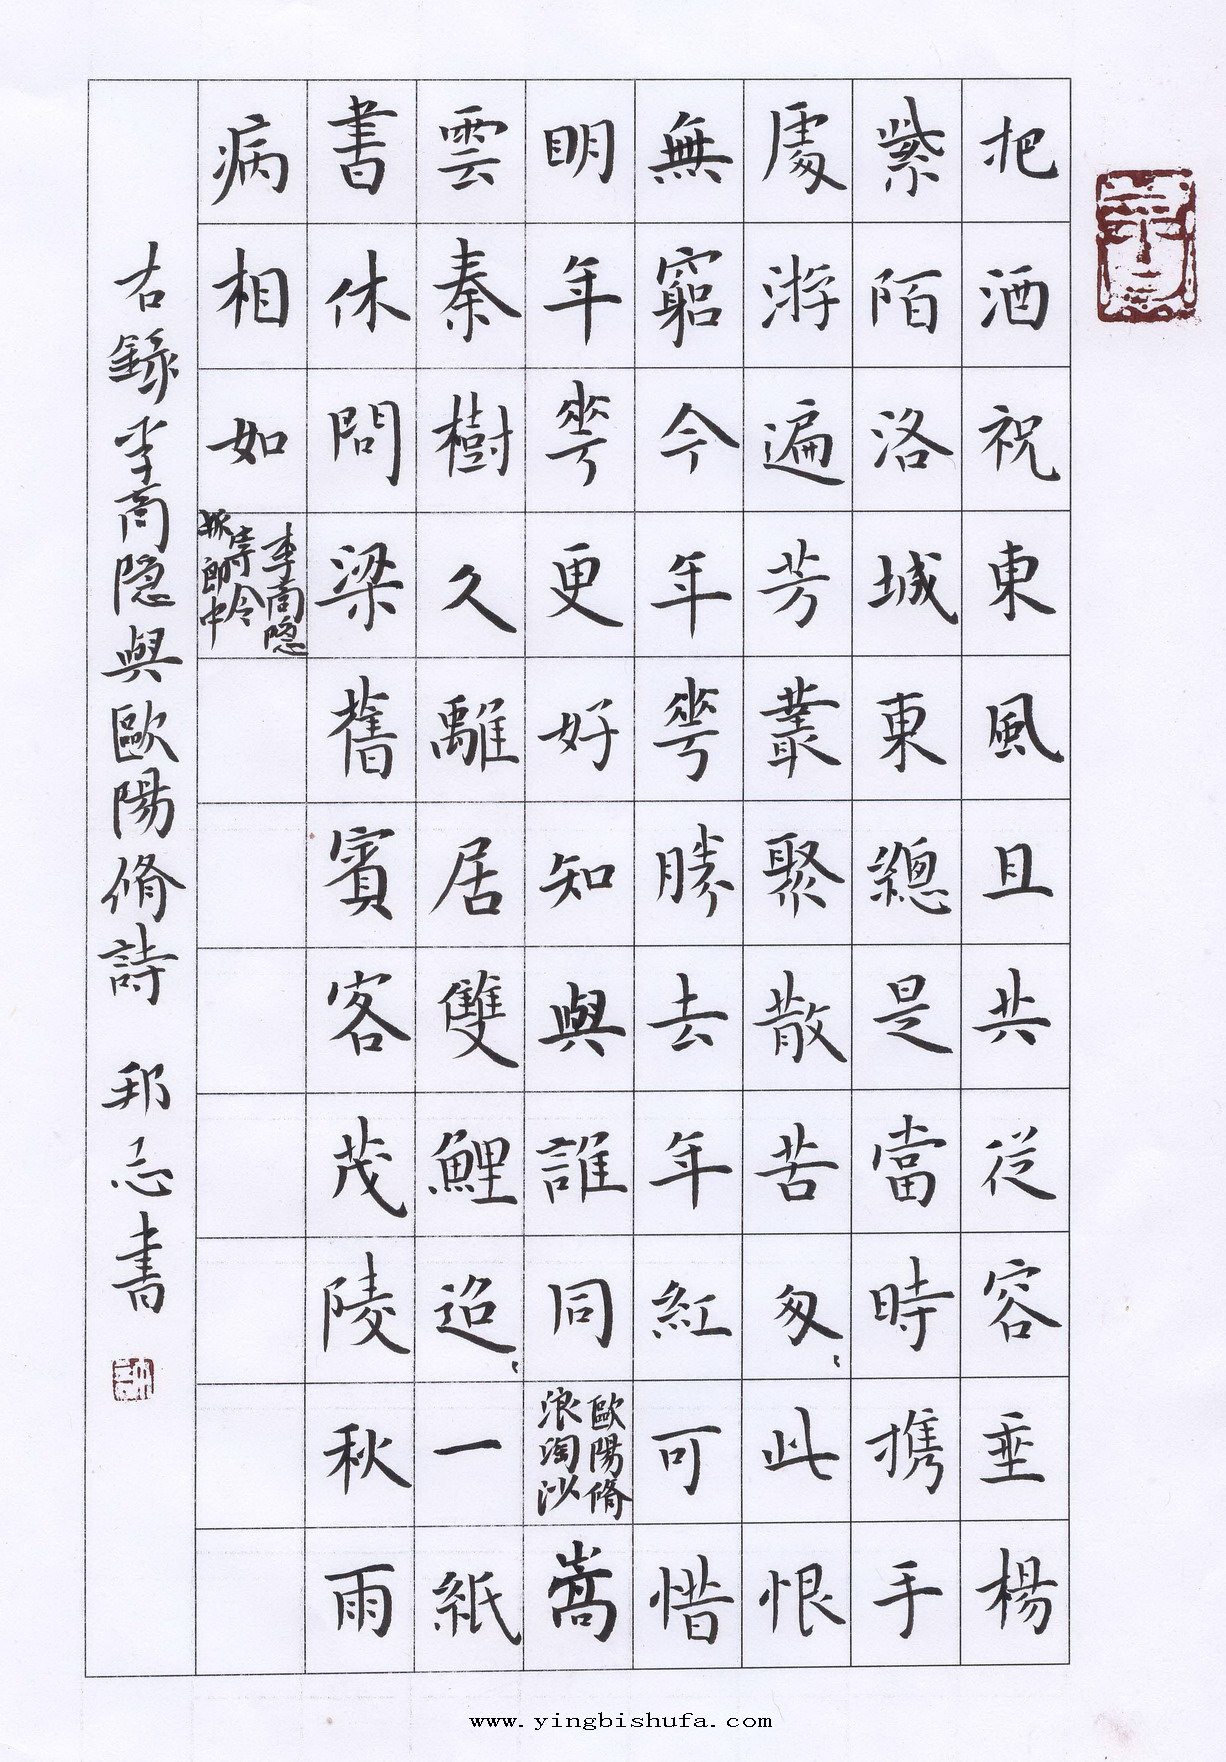 把酒祝東風且共從容垂楊
紫陌洛城東總是當時携手
處游遍芳叢聚散苦匆〻此恨
無窮今年花勝去年紅可惜
明年花更好知與誰同
歐陽脩
浪淘沙
嵩
雲秦樹久離居雙鯉迢〻一紙
書休問梁舊賓客茂陵秋雨
病相如
李商隱
寄令
狐郎中
右錄李商隱與歐陽脩詩 邦志書
www.yingbishufa.com